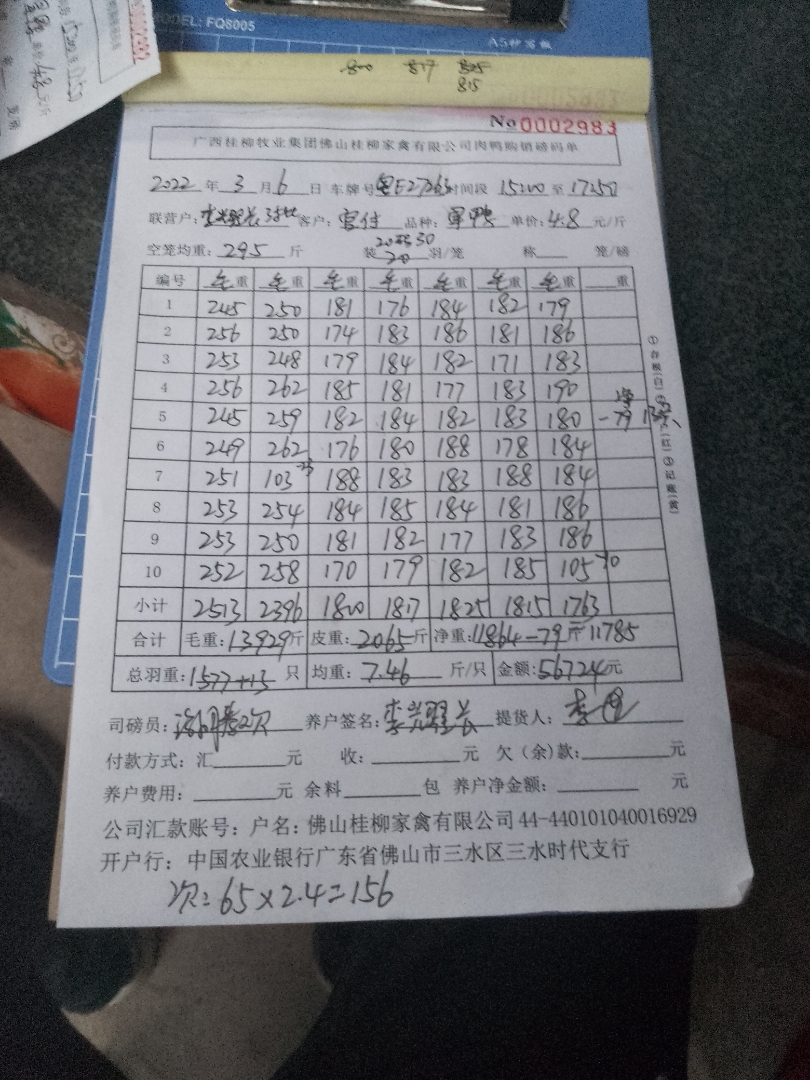 MODEL: FQ8005
A5秒写板
800 817 825
815
No 0002983
广西桂柳牧业集团佛山桂柳家禽有限公司肉鸭购销磅码单
2022 年 3 月 6 日 车牌号 粤E27263 时间段 15:00 至 17:50
联营户: 客户: 品种: 单价: 4.8 元/斤
空笼均重: 29.5 斤 装 20 羽/笼 称 笼/磅
编号 毛重 毛重 毛重 毛重 毛重 毛重 毛重 重
1 245 250 181 176 184 182 179
2 256 250 174 183 186 181 186
3 253 248 179 184 182 171 183
4 256 262 185 181 177 183 190
5 245 259 182 184 182 183 180 -79
6 249 262 176 180 188 178 184
7 251 103 188 183 183 188 184
8 253 254 184 185 184 181 186
9 253 250 181 182 177 183 186
10 252 258 170 179 182 185 105
小计 2513 2396 1800 1817 1825 1815 1763
合计 毛重: 13929斤 皮重: 2065斤 净重: 11864-79斤 11785
总羽重: 1577+13 只 均重: 7.46 斤/只 金额: 56724元
司磅员: 养户签名: 李光耀 提货人:
付款方式: 汇 元 收: 元 欠(余)款: 元
养户费用: 元 余料 包 养户净金额: 元
公司汇款账号: 户名: 佛山桂柳家禽有限公司 44-440101040016929
开户行: 中国农业银行广东省佛山市三水区三水时代支行
次=65×2.4=156
①存根(白)
(红)③记账(黄)